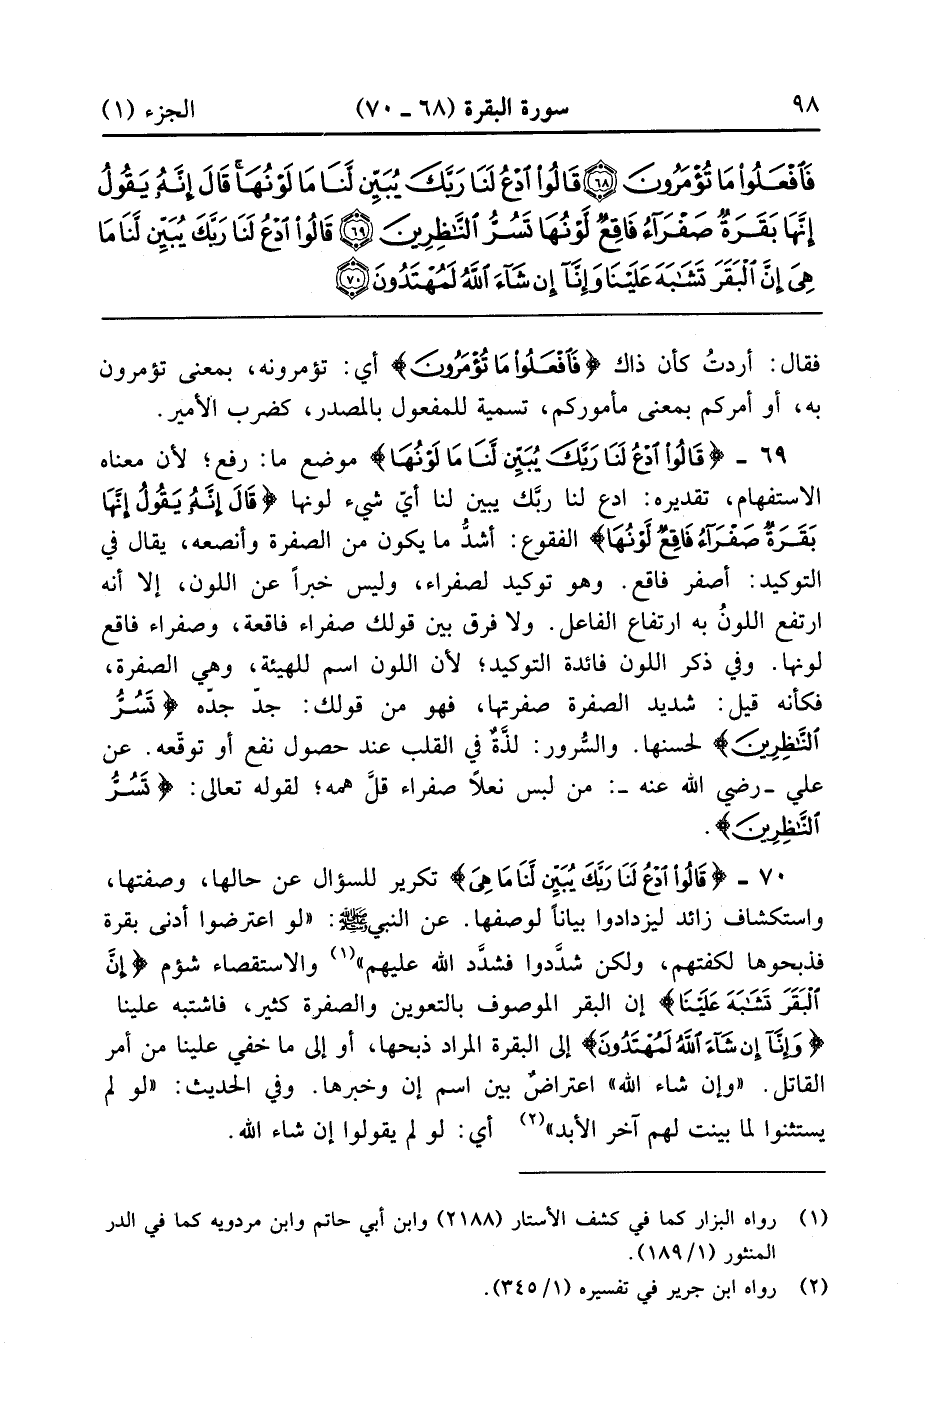 ٩٨ سورة البقرة (٦٨ ـ ٧٠) الجزء (١)
فَٱفْعَلُوا۟ مَا تُؤْمَرُونَ ﴿٦٨﴾ قَالُوا۟ ٱدْعُ لَنَا رَبَّكَ يُبَيِّن لَّنَا مَا لَوْنُهَا ۚ قَالَ إِنَّهُۥ يَقُولُ
إِنَّهَا بَقَرَةٌ صَفْرَآءُ فَاقِعٌ لَّوْنُهَا تَسُرُّ ٱلنَّٰظِرِينَ ﴿٦٩﴾ قَالُوا۟ ٱدْعُ لَنَا رَبَّكَ يُبَيِّن لَّنَا مَا
هِىَ إِنَّ ٱلْبَقَرَ تَشَٰبَهَ عَلَيْنَا وَإِنَّآ إِن شَآءَ ٱللَّهُ لَمُهْتَدُونَ ﴿٧٠﴾
فقال: أردتُ كأن ذاك ﴿فَٱفْعَلُوا۟ مَا تُؤْمَرُونَ﴾ أي: تؤمرونه، بمعنى تؤمرون
به، أو أمركم بمعنى مأموركم، تسمية للمفعول بالمصدر، كضرب الأمير.
٦٩ ـ ﴿قَالُوا۟ ٱدْعُ لَنَا رَبَّكَ يُبَيِّن لَّنَا مَا لَوْنُهَا﴾ موضع ما: رفع؛ لأن معناه
الاستفهام، تقديره: ادع لنا ربَّك يبين لنا أيّ شيء لونها ﴿قَالَ إِنَّهُۥ يَقُولُ إِنَّهَا
بَقَرَةٌ صَفْرَآءُ فَاقِعٌ لَّوْنُهَا﴾ الفقوع: أشدُّ ما يكون من الصفرة وأنصعه، يقال في
التوكيد: أصفر فاقع. وهو توكيد لصفراء، وليس خبراً عن اللون، إلا أنه
ارتفع اللونُ به ارتفاع الفاعل. ولا فرق بين قولك صفراء فاقعة، وصفراء فاقع
لونها. وفي ذكر اللون فائدة التوكيد؛ لأن اللون اسم للهيئة، وهي الصفرة،
فكأنه قيل: شديد الصفرة صفرتها، فهو من قولك: جدّ جدّه ﴿تَسُرُّ
ٱلنَّٰظِرِينَ﴾ لحسنها. والسُّرور: لذَّةٌ في القلب عند حصول نفع أو توقّعه. عن
علي ـ رضي الله عنه ـ: من لبس نعلاً صفراء قلَّ همه؛ لقوله تعالى: ﴿تَسُرُّ
ٱلنَّٰظِرِينَ﴾.
٧٠ ـ ﴿قَالُوا۟ ٱدْعُ لَنَا رَبَّكَ يُبَيِّن لَّنَا مَا هِىَ﴾ تكرير للسؤال عن حالها، وصفتها،
واستكشاف زائد ليزدادوا بياناً لوصفها. عن النبي ﷺ: «لو اعترضوا أدنى بقرة
فذبحوها لكفتهم، ولكن شدَّدوا فشدَّد الله عليهم»(١) والاستقصاء شؤم ﴿إِنَّ
ٱلْبَقَرَ تَشَٰبَهَ عَلَيْنَا﴾ إن البقر الموصوف بالتعوين والصفرة كثير، فاشتبه علينا
﴿وَإِنَّآ إِن شَآءَ ٱللَّهُ لَمُهْتَدُونَ﴾ إلى البقرة المراد ذبحها، أو إلى ما خفي علينا من أمر
القاتل. «وإن شاء الله» اعتراضٌ بين اسم إن وخبرها. وفي الحديث: «لو لم
يستثنوا لما بينت لهم آخر الأبد»(٢) أي: لو لم يقولوا إن شاء الله.
(١) رواه البزار كما في كشف الأستار (٢١٨٨) وابن أبي حاتم وابن مردويه كما في الدر
المنثور (١/ ١٨٩).
(٢) رواه ابن جرير في تفسيره (١/ ٣٤٥).